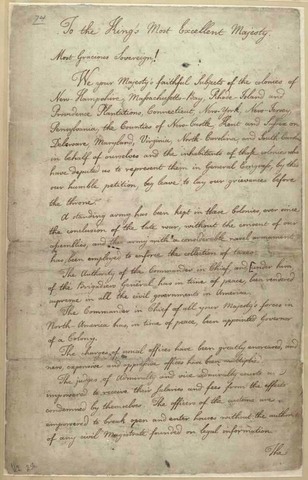 74
To the King's Most Excellent Majesty.
Most Gracious Sovereign!
We your Majesty's faithful Subjects of the colonies of
New-Hampshire, Massachusetts-Bay, Rhode-Island and
Providence Plantations, Connecticut, New-York, New-Jersey,
Pennsylvania, the Counties of New-Castle, Kent and Sussex on
Delaware, Maryland, Virginia, North-Carolina, and South Carolina
in behalf of ourselves and the inhabitants of those colonies who
have deputed us to represent them in General Congress, by this
our humble petition, beg leave to lay our grievances before
the throne.
A standing army has been kept in these Colonies, ever since
the conclusion of the late war, without the consent of our
assemblies; and this army with a considerable naval armament
has been employed to enforce the collection of taxes.
The Authority of the Commander in Chief, and under him
of the Brigadiers General, has in time of peace, been rendered
supreme in all the civil governments in America.
The Commander in Chief of all your Majesty's forces in
North-America has, in time of peace, been appointed Governor
of a Colony.
The charges of usual offices have been greatly increased, and
new, expensive and oppressive offices have been multiplied.
The judges of Admiralty and vice admiralty courts are
empowered to receive their salaries and fees from the effects
condemned by themselves. The officers of the customs are
empowered to break open and enter houses without the authority
of any civil Magistrate founded on legal information.
The